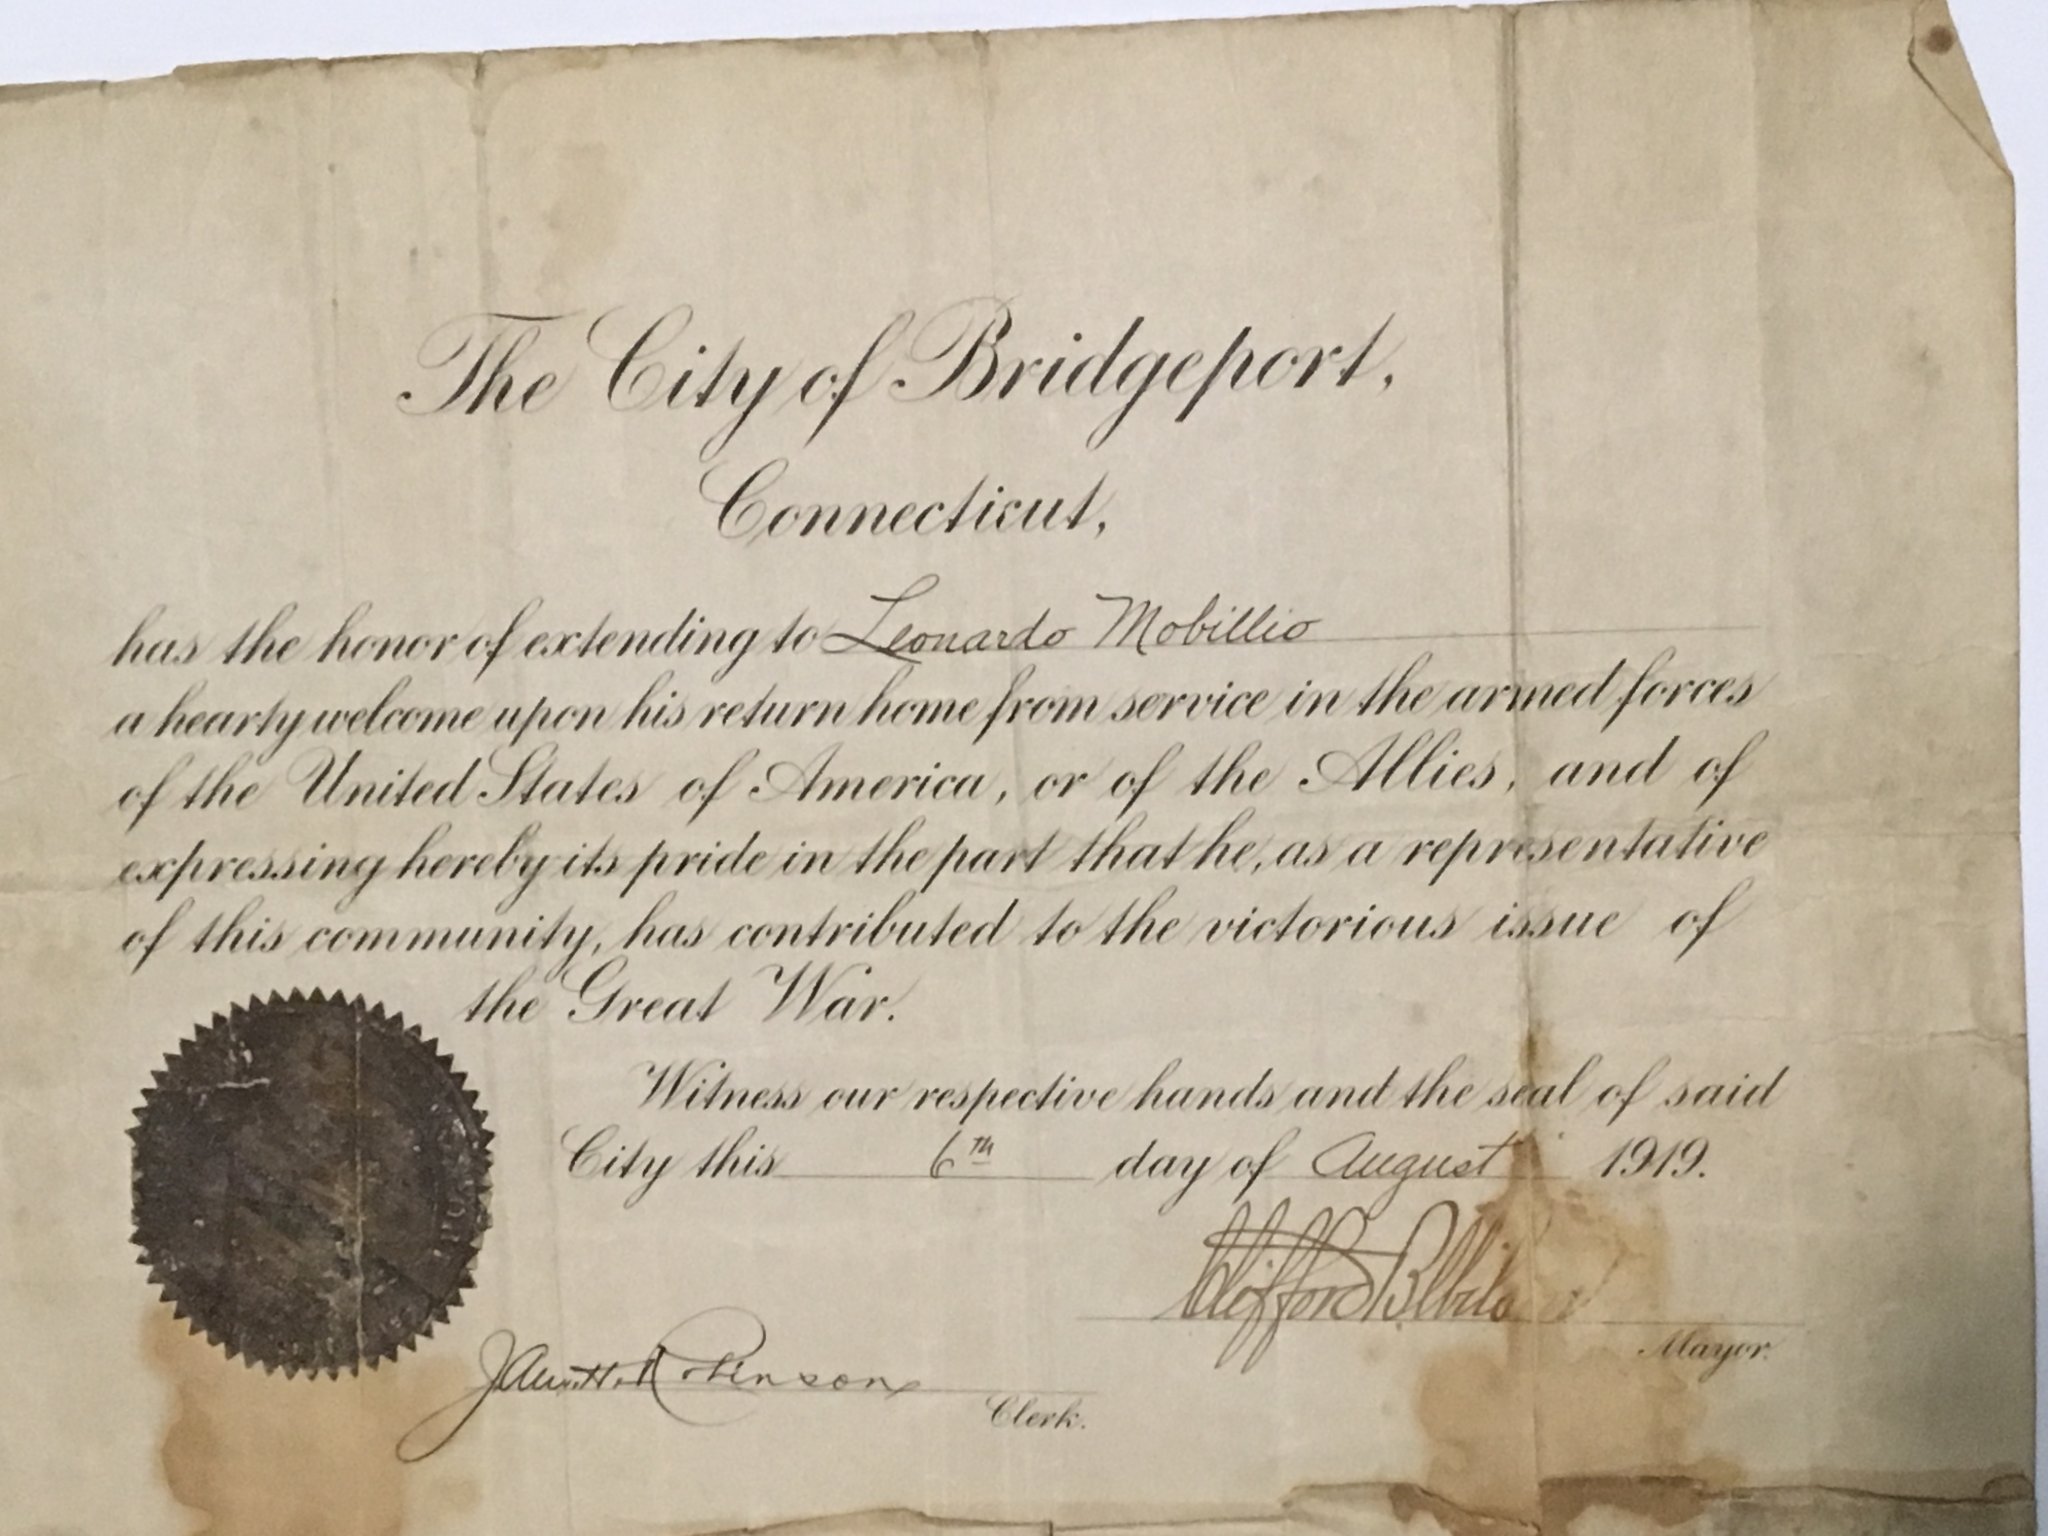 The City of Bridgeport,
Connecticut,
has the honor of extending to Leonardo Mobillio
a hearty welcome upon his return home from service in the armed forces
of the United States of America, or of the Allies, and of
expressing hereby its pride in the part that he, as a representative
of this community, has contributed to the victorious issue of
the Great War.
Witness our respective hands and the seal of said
City this 6TH day of August 1919.
Clifford B. Wilson
Mayor.
Robinson
Clerk.